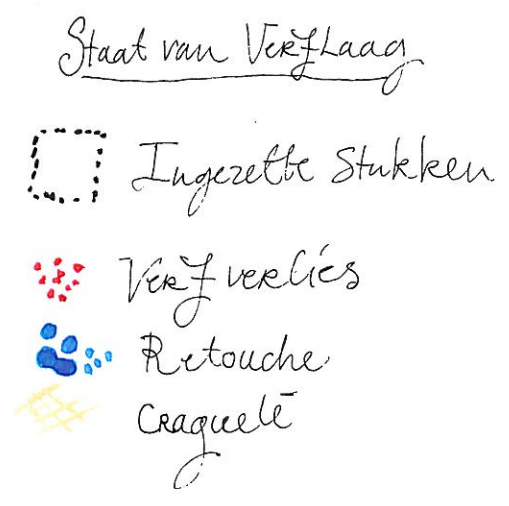 Staat van Verflaag
Ingezette Stukken
Verfverlies
Retouche
Craquelē